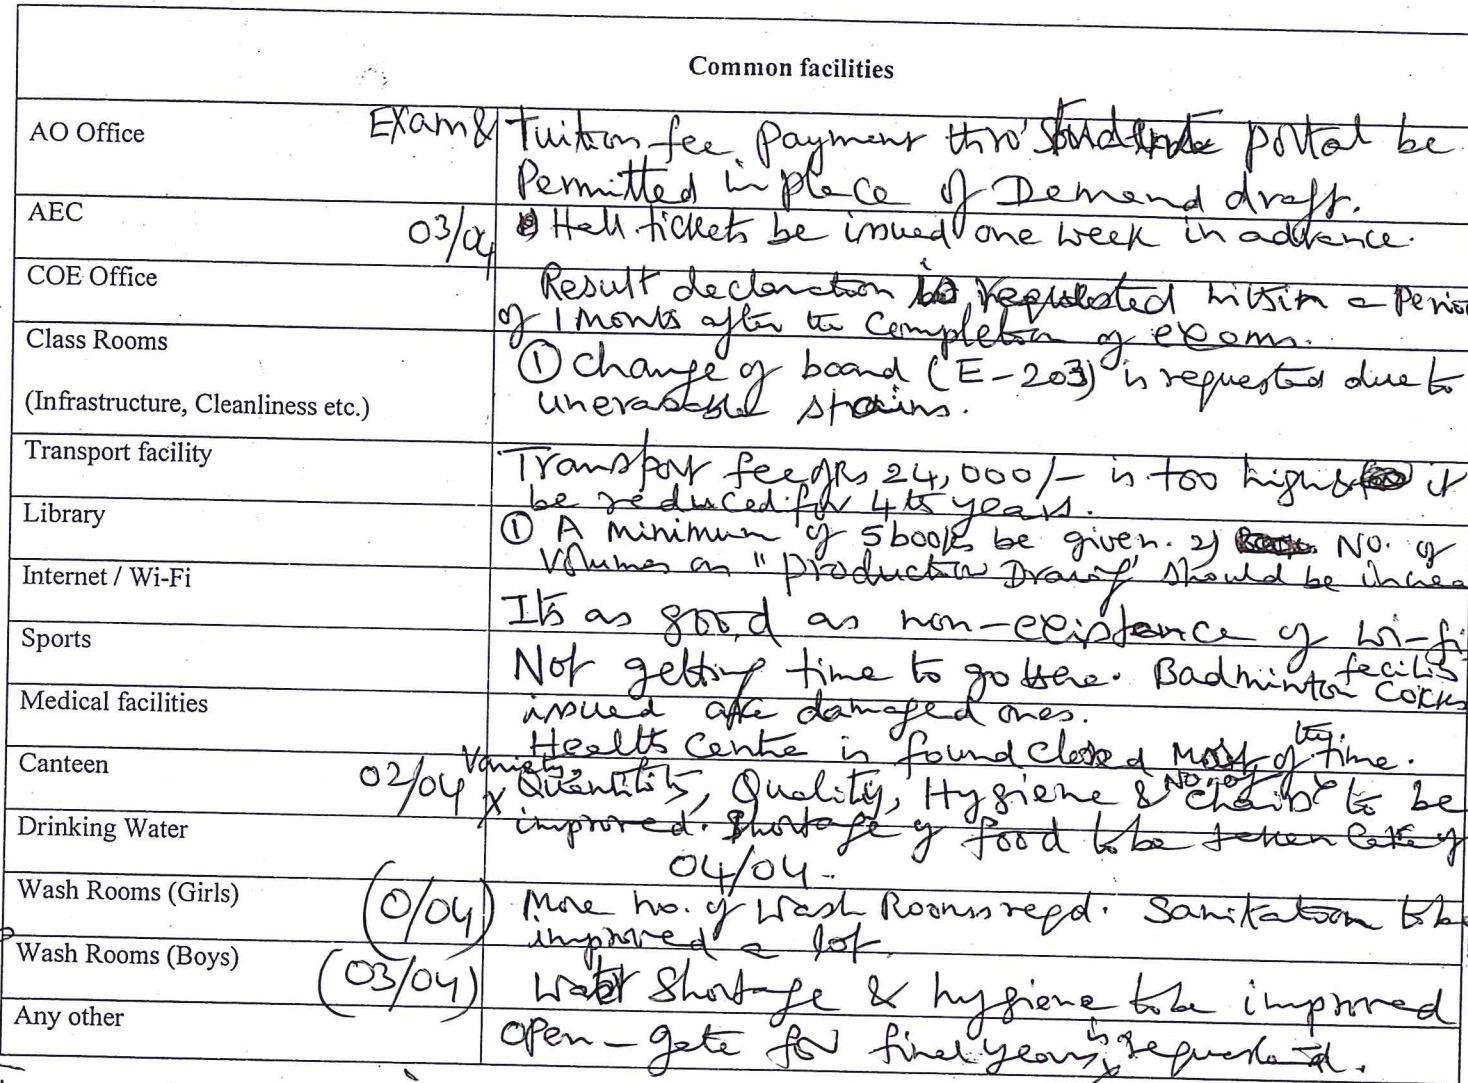 Common facilities
AO Office
Exam & Tuition fee payment thro' student portal be
Permitted in place of Demand draft.
AEC
03/04 Hall tickets be issued one week in advance.
COE Office
Result declaration is requested within a Perio
of 1 month after the Completion of exams.
Class Rooms
(Infrastructure, Cleanliness etc.)
① Change of board (E-203) is requested due to
unerasable stains.
Transport facility
Transport fee of Rs 24,000/- is too high & it
be reduced for 4th years.
Library
① A minimum of 5 books be given. 2) No. of
Volumes on "Production Drawing" should be increa
Internet / Wi-Fi
Its as good as non-existence of Wi-fi
facility
Sports
Not getting time to go there. Badminton Cocks
issued are damaged ones.
Medical facilities
Health Centre is found closed Most of the time.
Canteen
02/04 Variety, Quantity, Quality, Hygiene & No. of Chairs to be
improved. Shortage of food to be taken care of
Drinking Water
04/04.
Wash Rooms (Girls)
(0/04) More no. of Wash Rooms reqd. Sanitation to be
improved a lot
Wash Rooms (Boys)
(03/04) Water Shortage & hygiene to be improved
Any other
Open-gate for final years is requested.